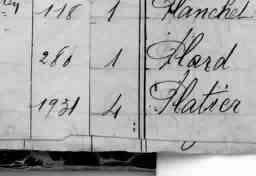 118 1 Planchet
280 1 Plard
1931 4 Platier